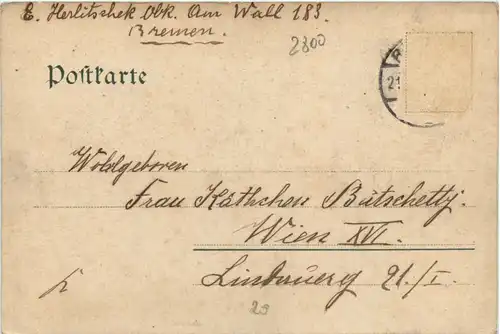 E. Herlitschek Obk. Am Wall 183.
Bremen.
2800
Postkarte
21
Wohlgeboren
Frau Käthchen Butschetty.
Wien XVI.
Lindauerg 21./I.
29